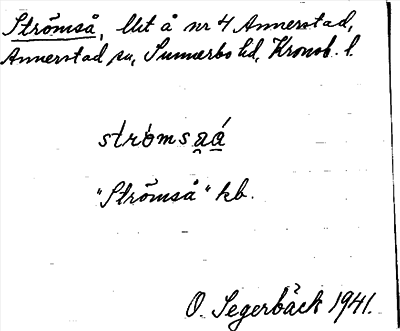 Strömså, lht å nr 4 Annerstad,
Annerstad sn, Sunnerbo hd, Kronob. l.
strömsa̯á̱
"Strömså" kb.
O. Segerbäck 1941.